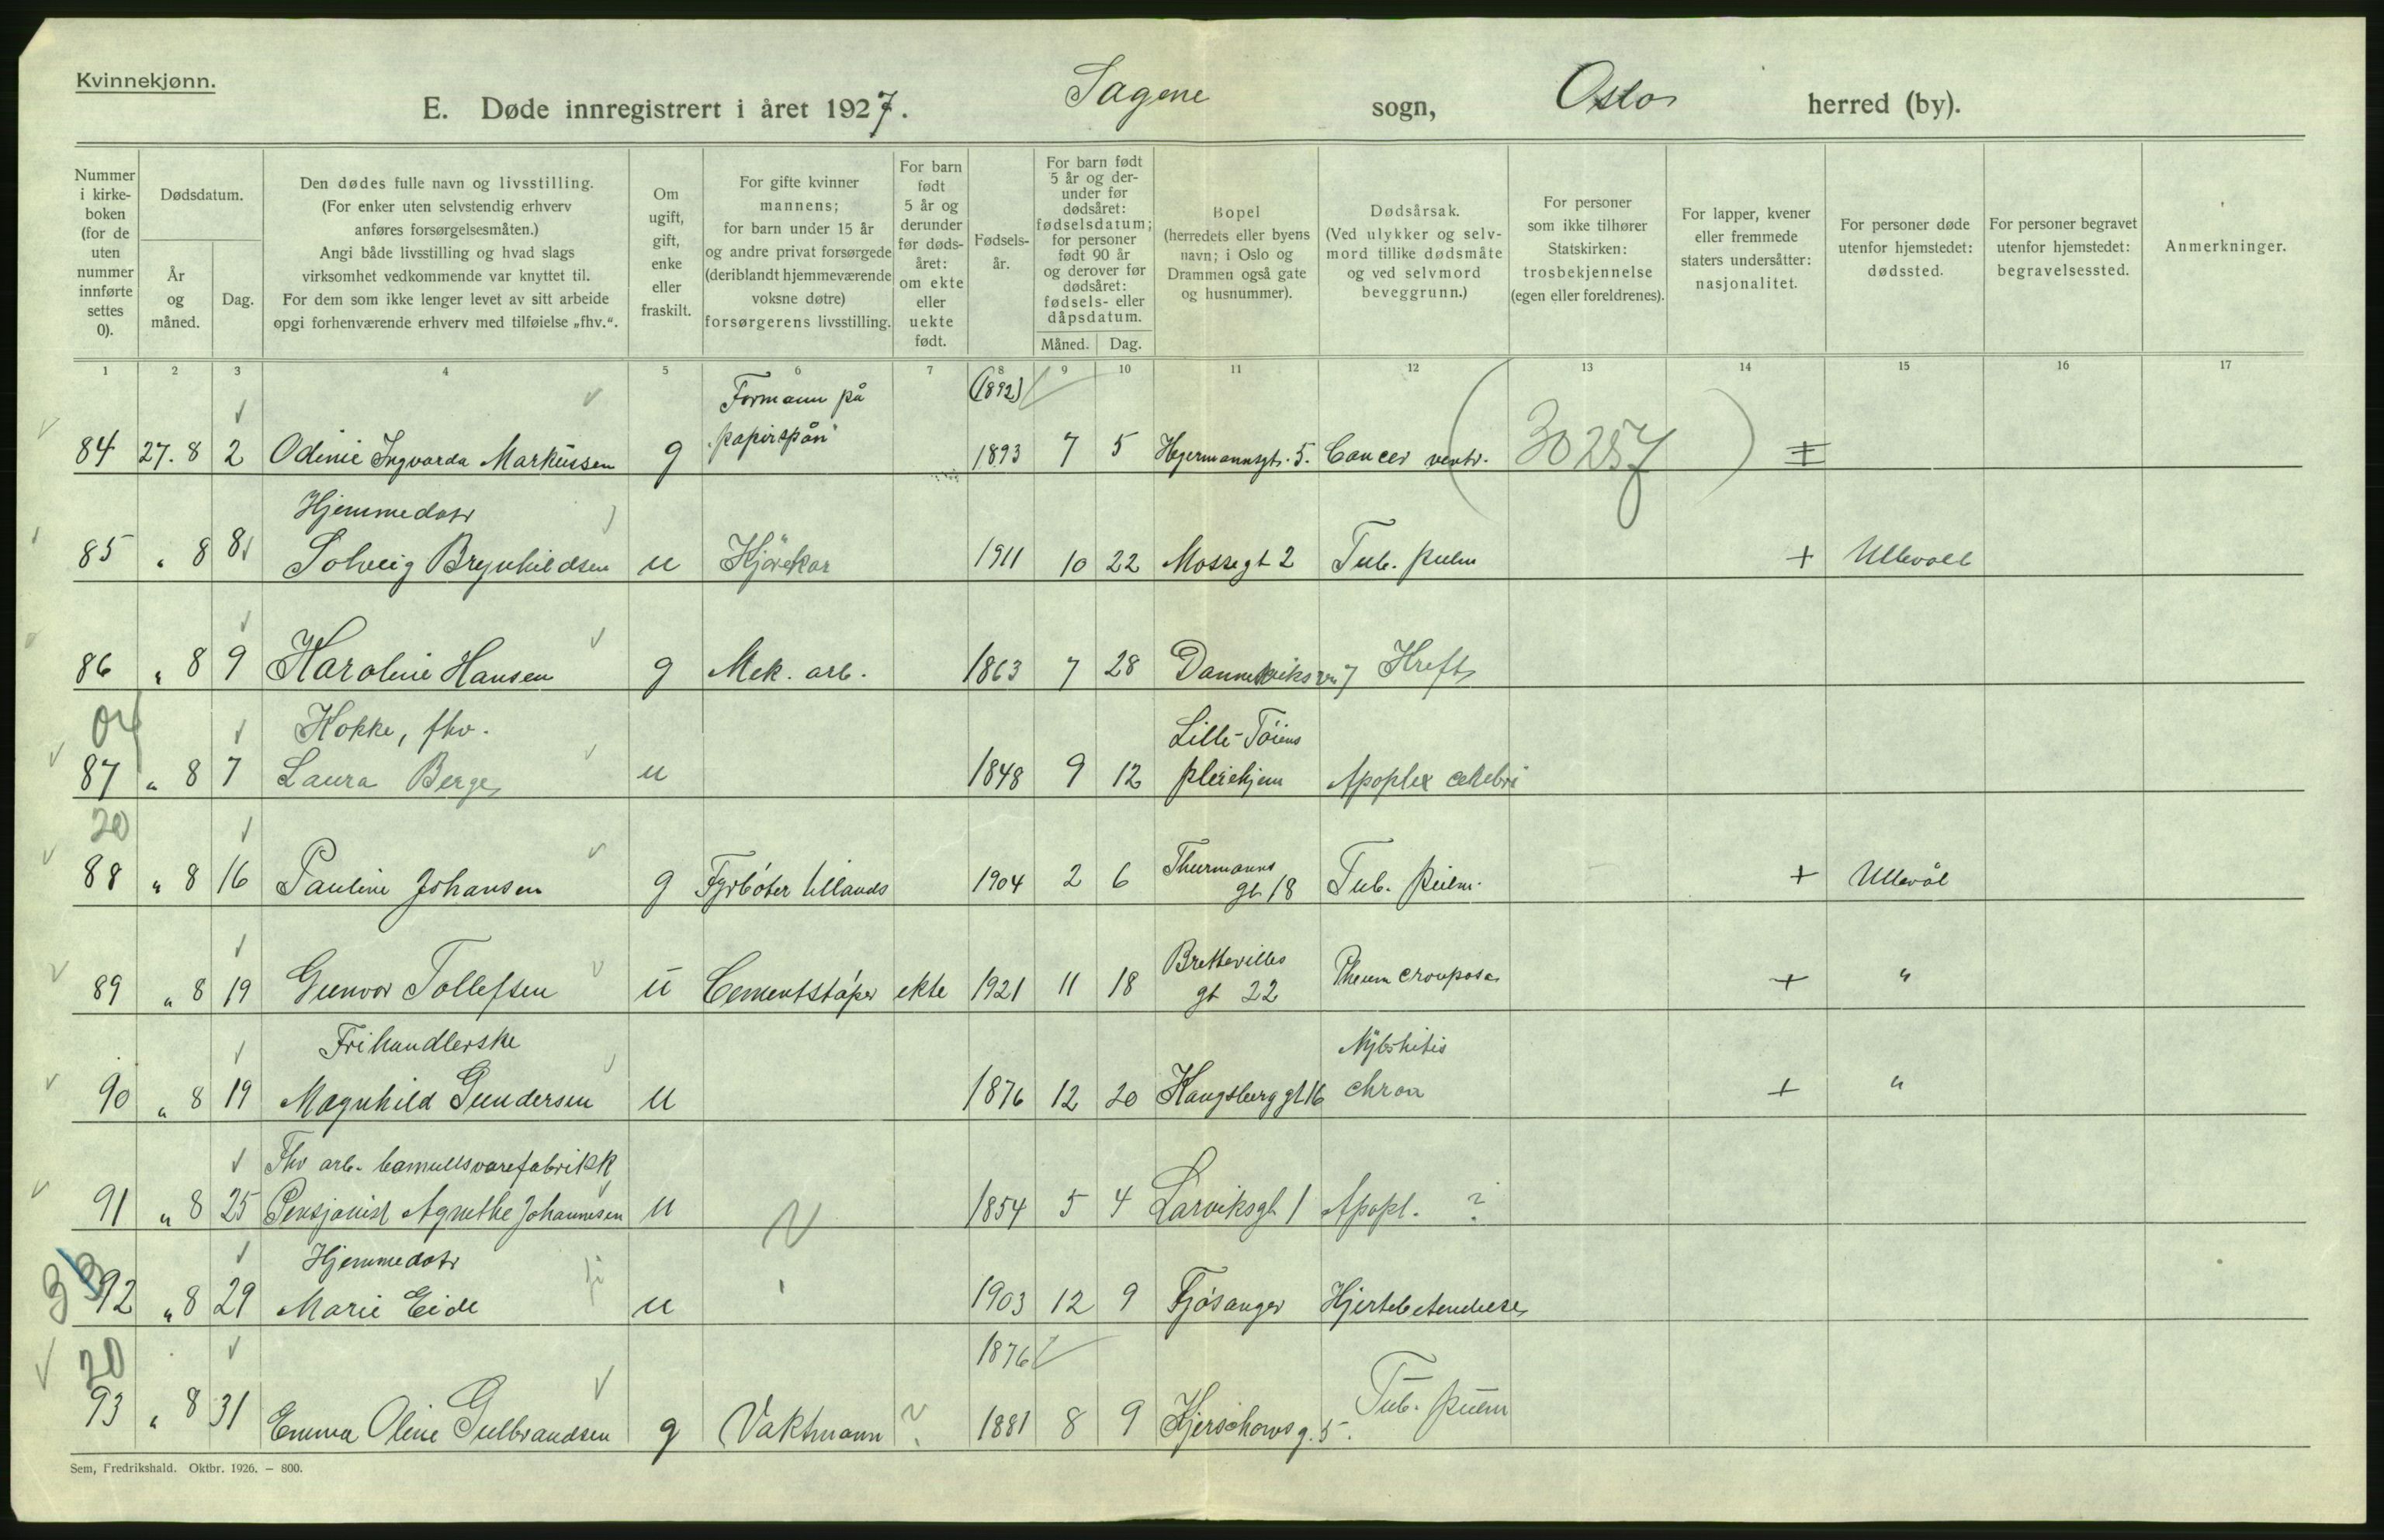 Kvinnekjønn.
E. Døde innregistrert i året 1927. Sagene sogn, Oslo herred (by).
Nummer i kirke-boken (for de uten nummer innførte settes 0).
Dødsdatum.
År og måned.
Dag.
Den dødes fulle navn og livsstilling.
(For enker uten selvstendig erhverv anføres forsørgelsesmåten.)
Angi både livsstilling og hvad slags virksomhet vedkommende var knyttet til.
For dem som ikke lenger levet av sitt arbeide opgi forhenværende erhverv med tilføielse „fhv.“.
Om ugift, gift, enke eller fraskilt.
For gifte kvinner mannens; for barn under 15 år og andre privat forsørgede (deriblandt hjemmeværende voksne døtre) forsørgerens livsstilling.
For barn født 5 år og derunder før døds-året: om ekte eller uekte født.
Fødsels-år.
For barn født 5 år og der-under før dødsåret: fødselsdatum; for personer født 90 år og derover før dødsåret: fødsels- eller dåpsdatum.
Måned. Dag.
Bopel (herredets eller byens navn; i Oslo og Drammen også gate og husnummer).
Dødsårsak. (Ved ulykker og selv-mord tillike dødsmåte og ved selvmord beveggrunn.)
For personer som ikke tilhører Statskirken: trosbekjennelse (egen eller foreldrenes).
For lapper, kvener eller fremmede staters undersåtter: nasjonalitet.
For personer døde utenfor hjemstedet: dødssted.
For personer begravet utenfor hjemstedet: begravelsessted.
Anmerkninger.
1 2 3 4 5 6 7 8 9 10 11 12 13 14 15 16 17
Formann på (1892)
84 27. 8 2 Odinie Ingvarda Markussen g "papirspån" 1893 7 5 Hegermannsgt. 5. Cancer ventr. (30257) ‡
Hjemmedatr
85 " 8 8 Solveig Brynhildsen u Kjörekar 1911 10 22 Mossegt 2 Tub. pulm + Ullevoll
86 " 8 9 Karoline Hansen g Mek. arb. 1863 7 28 7 Kreft
04 Kokke, fhv. Lille-Töiens
87 " 8 7 Laura Berge u 1848 9 12 pleiehjem Apoplex celebri
20 Thurmanns
88 " 8 16 Pauline Johansen g Fyrböter tillands 1904 2 6 gt 18 Tub. pulm. + Ullevål
Brettevilles
89 " 8 19 Gunvor Tollefsen u Cementstöper ekte 1921 11 18 gt 22 Pneum crouposa + "
Frihandlerske
90 " 8 19 Magnhild Gundersen u 1876 12 20 Kongsberg gt 16 chron + "
Fhv arb. bomullsvarefabrikk
91 " 8 25 Pensjonist Agnethe Johannesen u 1854 5 4 Larviksgt 1 Apopl. ?
Hjemmedatr
33 92 " 8 29 Marie Eide u 1903 12 9 Fjösanger Hjertebetendelse
20 1876
93 " 8 31 Emma Oline Gulbrandsen g Vaktmann ? 1881 8 9 Hjerschowsg. 5. Tub. pulm
Sem, Fredrikshald. Oktbr. 1926. — 800.